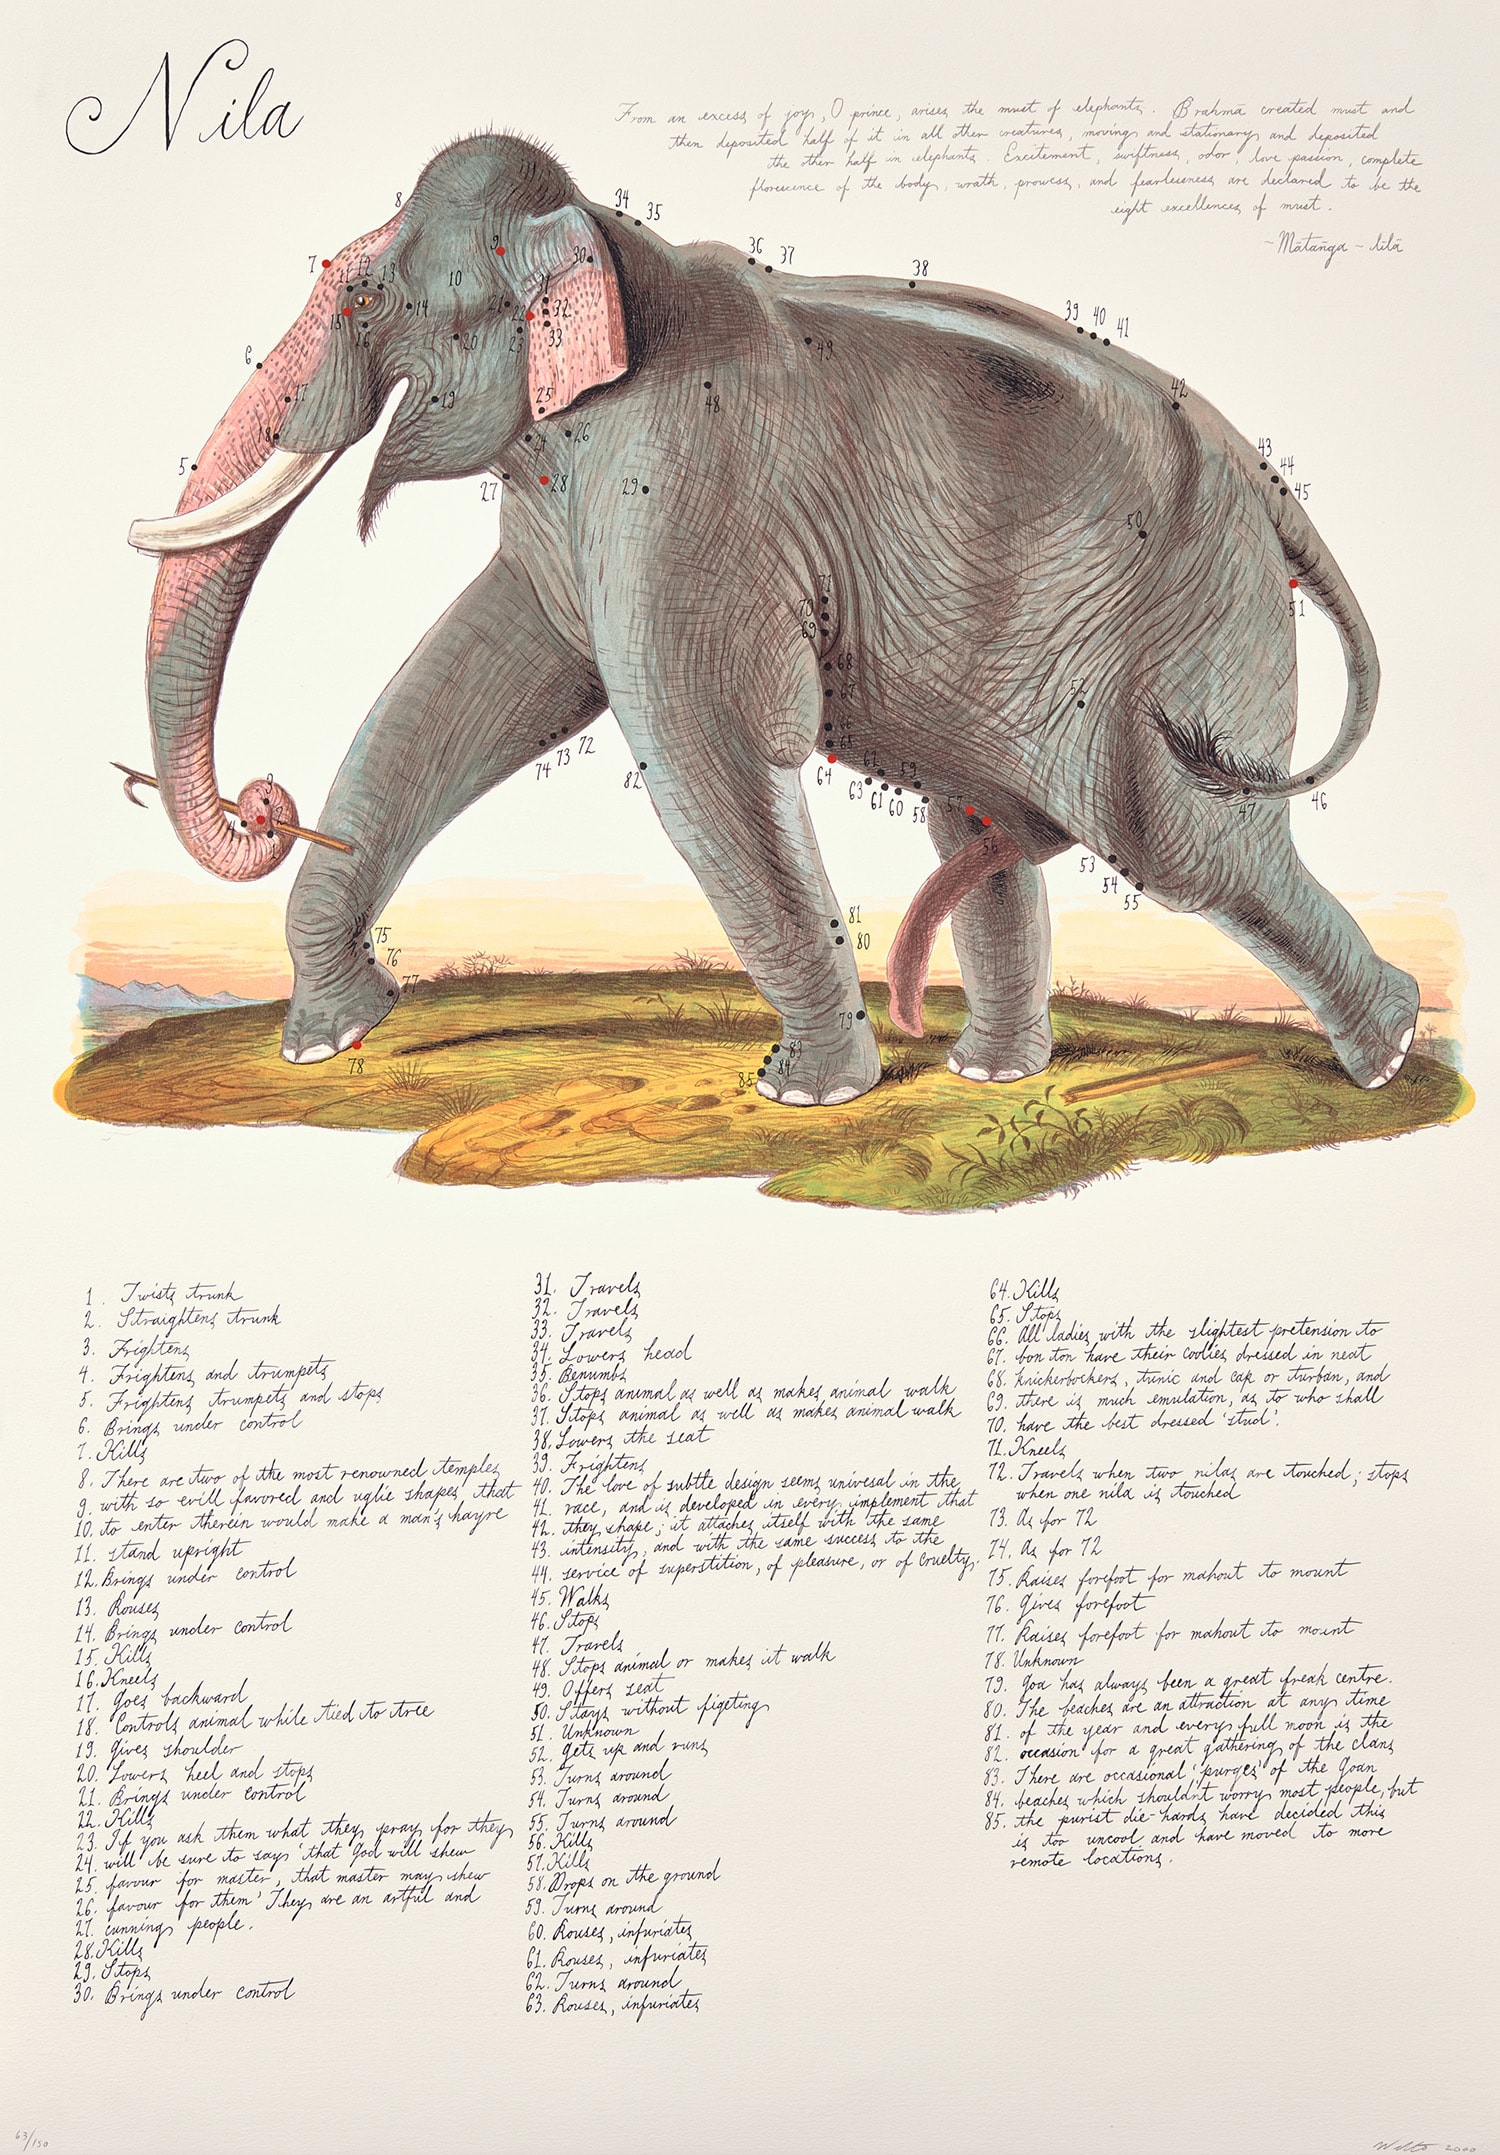 Nila
From an excess of joy, O prince, arises the must of elephants. Brahmā created must and
then deposited half of it in all other creatures, moving and stationary, and deposited
the other half in elephants. Excitement, swiftness, odor, love passion, complete
florescence of the body, wrath, prowess, and fearlessness are declared to be the
eight excellences of must.
~ Mātaṅga ~ līlā
1. Twists trunk
2. Straightens trunk
3. Frightens
4. Frightens and trumpets
5. Frightens trumpets and stops
6. Brings under control
7. Kills
8. There are two of the most renowned temples
9. with so evill favored and uglie shapes that
10. to enter therein would make a man's hayre
11. stand upright
12. Brings under control
13. Rouses
14. Brings under control
15. Kills
16. Kneels
17. Goes backward
18. Controls animal while tied to tree
19. Gives shoulder
20. Lowers heel and stops
21. Brings under control
22. Kills
23. If you ask them what they pray for they
24. will be sure to say 'that God will shew
25. favour for master, that master may shew
26. favour for them' They are an artful and
27. cunning people.
28. Kills
29. Stops
30. Brings under control
31. Travels
32. Travels
33. Travels
34. Lowers head
35. Benumbs
36. Stops animal as well as makes animal walk
37. Stops animal as well as makes animal walk
38. Lowers the seat
39. Frightens
40. The love of subtle design seems univesal in the
41. race, and is developed in every implement that
42. they shape; it attaches itself with the same
43. intensity, and with the same success to the
44. service of superstition, of pleasure, or of cruelty.
45. Walks
46. Stops
47. Travels
48. Stops animal or makes it walk
49. Offers seat
50. Stays without figeting
51. Unknown
52. Gets up and runs
53. Turns around
54. Turns around
55. Turns around
56. Kills
57. Kills
58. Drops on the ground
59. Turns around
60. Rouses, infuriates
61. Rouses, infuriates
62. Turns around
63. Rouses, infuriates
64. Kills
65. Stops
66. All ladies with the slightest pretension to
67. bon ton have their coolies dressed in neat
68. knickerbockers, tunic and cap or turban, and
69. there is much emulation, as to who shall
70. have the best dressed 'stud'.
71. Kneels
72. Travels when two nilas are touched; stops
when one nila is touched
73. As for 72
74. As for 72
75. Raises forefoot for mahout to mount
76. Gives forefoot
77. Raises forefoot for mahout to mount
78. Unknown
79. Goa has always been a great freak centre.
80. The beaches are an attraction at any time
81. of the year and every full moon is the
82. occasion for a great gathering of the clans
83. There are occasional 'purges' of the Goan
84. beaches which shouldn't worry most people, but
85. the purist die-hards have decided this
is too uncool and have moved to more
remote locations.
63/150
2000